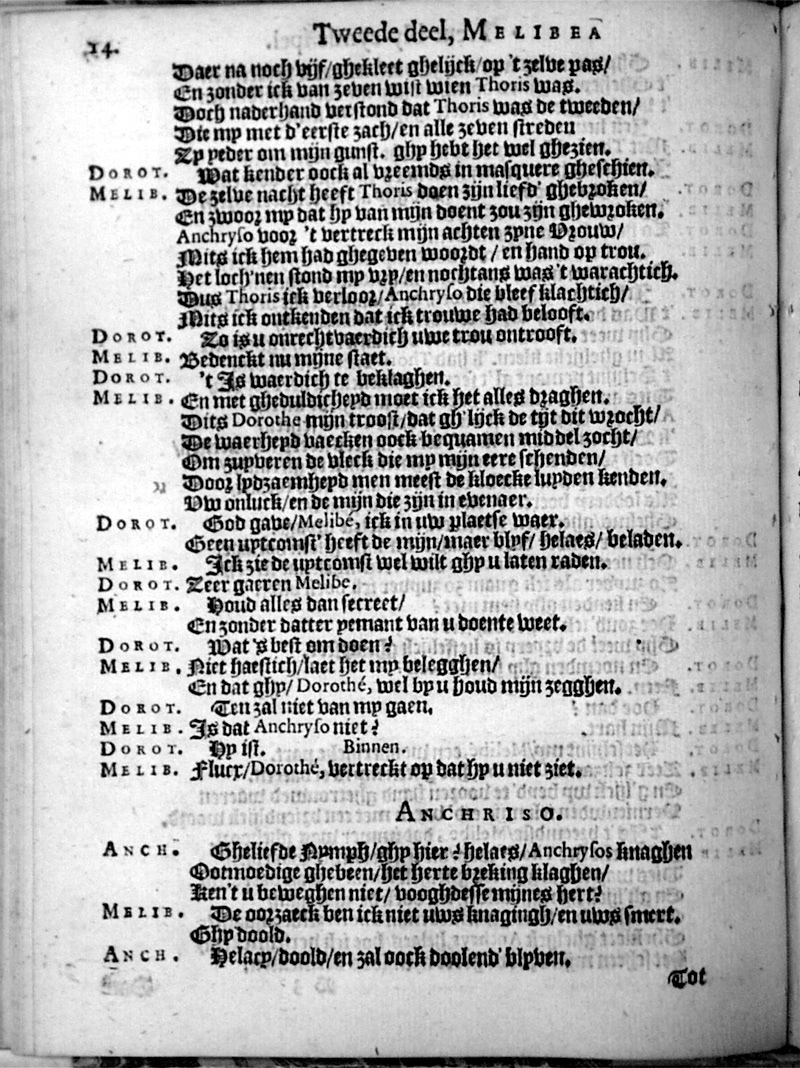 14.
Tweede deel, MELIBEA
Daer na noch vijf/ghekleet ghelijck/op 't zelve pas/
En zonder ick van zeven wist wien Thoris was.
Doch naderhand verstond dat Thoris was de tweeden/
Die my met d'eerste zach/en alle zeven streden
Zy yeder om mijn gunst. ghy hebt het wel ghezien.
DOROT. Wat kender oock al vreemds in masquere gheschien.
MELIB. De zelve nacht heeft Thoris doen zijn liefd' ghebroken/
En zwoor my dat hy van mijn doent zou zijn ghewroken.
Anchryso voor 't vertreck mijn achten zyne Vrouw/
Mits ick hem had ghegeven woordt / en hand op trou.
Het loch'nen stond my vry/en nochtans was't warachtich.
Dus Thoris ick verloor/Anchryso die bleef klachtich/
Mits ick ontkenden dat ick trouwe had belooft.
DOROT. Zo is u onrechtvaerdich uwe trou ontrooft.
MELIB. Bedenckt nu mijne staet.
DOROT. 't Is waerdich te beklaghen.
MELIB. En met gheduldicheyd moet ick het alles draghen.
Dits Dorothe mijn troost/dat gh'lijck de tijt dit wrocht/
De waerheyd vaecken oock bequamen middel zocht/
Om zuyveren de vleck die my mijn eere schenden/
Door lydzaemheyd men meest de kloecke luyden kenden.
Uw onluck/en de mijn die zijn in evenaer.
DOROT. God gave/Melibé, ick in uw plaetse waer.
Geen uytcomst' heeft de mijn/maer blyf/ helaes/ beladen.
MELIB. Ick zie de uytcomst wel wilt ghy u laten raden.
DOROT. Zeer gaeren Melibe.
MELIB. Houd alles dan secreet/
En zonder datter yemant van u doente weet.
DOROT. Wat 's best om doen?
MELIB. Niet haestich/laet het my belegghen/
En dat ghy/ Dorothé, wel by u houd mijn zegghen.
DOROT. Ten zal niet van my gaen.
MELIB. Is dat Anchryso niet?
DOROT. Hy ist. Binnen.
MELIB. Flucx/Dorothé, vertreckt op dat hy u niet ziet.
ANCHRISO.
ANCH. Gheliefde Nymph/ghy hier? helaes/Anchrysos knaghen
Ootmoedige ghebeen/het herte breking klaghen/
Ken't u beweghen niet/ vooghdesse mijnes hert?
MELIB. De oorzaeck ben ick niet uws knagingh/en uws smert.
Ghy doold.
ANCH. Helacy/doold/en zal oock doolend' blyven.
Tot